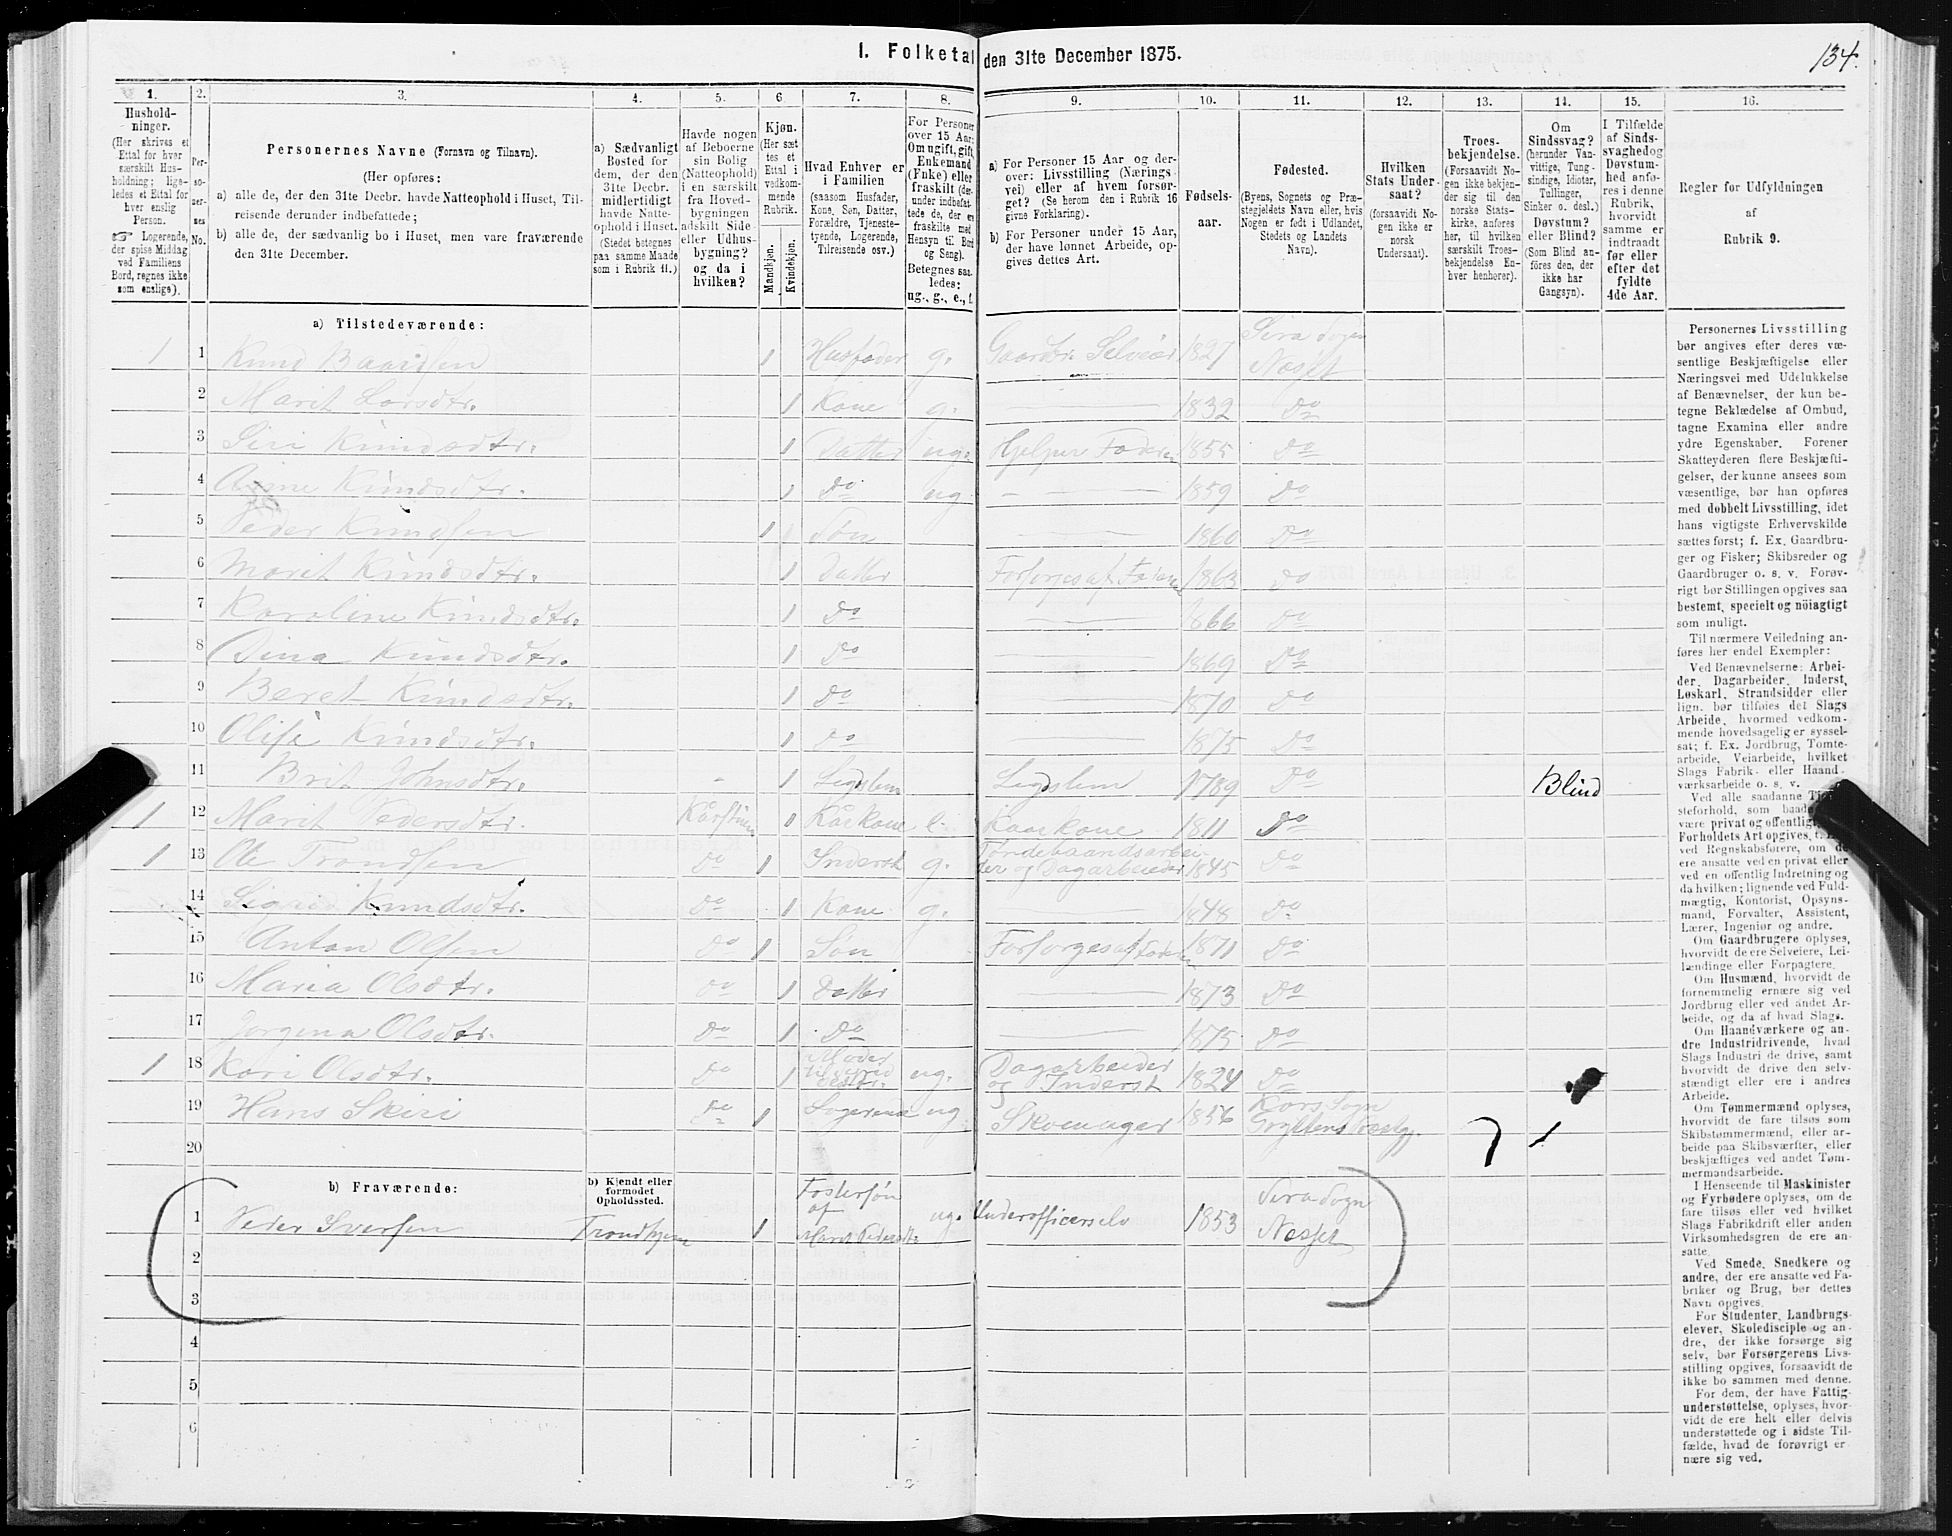 134.
I. Folketal den 31te December 1875.
1. 2. 3. 4. 5. 6. 7. 8. 9. 10. 11. 12. 13. 14. 15. 16.
Hushold-
ninger.
(Her skrives et
Ettal for hver
særskilt Hus-
holdning; lige-
ledes et Ettal for
hver enslig
Person.
☞ Logerende,
der spise Middag
ved Familiens
Bord, regnes ikke
som enslige).
Per-
so-
ner-
nes
No.
Personernes Navne (Fornavn og Tilnavn).
(Her opføres:
a) alle de, der den 31te Decbr. havde Natteophold i Huset, Til-
reisende derunder indbefattede;
b) alle de, der sædvanlig bo i Huset, men vare fraværende
den 31te December.
a) Sædvanligt
Bosted for
dem, der den
31te Decbr.
midlertidigt
havde Natte-
ophold i Huset.
(Stedet betegnes
paa samme Maade
som i Rubrik 11.)
Havde nogen
af Beboerne
sin Bolig
(Natteophold)
i en særskilt
fra Hoved-
bygningen
adskilt Side-
eller Udhus-
bygning?
og da i
hvilken?
Kjøn.
(Her sæt-
tes et
Ettal i
vedkom-
mende
Rubrik.
Mandkjøn.
Kvindekjøn.
Hvad Enhver er
i Familien
(saasom Husfader,
Kone, Søn, Datter,
Forældre, Tjeneste-
tyende, Logerende,
Tilreisende osv.)
For Personer
over 15 Aar:
Om ugift, gift,
Enkemand
(Enke) eller
fraskilt (der-
under indbefat-
tede de, der ere
fraskilte med
Hensyn til Bord
og Seng).
Betegnes saa-
ledes:
ug., g., e., f.
a) For Personer 15 Aar og der-
over: Livsstilling (Nærings-
vei) eller af hvem forsør-
get? (Se herom den i Rubrik 16
givne Forklaring).
b) For Personer under 15 Aar,
der have lønnet Arbeide, op-
gives dettes Art.
Fødsels-
aar.
Fødested.
(Byens, Sognets og Præ-
stegjeldets Navn eller, hvis
Nogen er født i Udlandet,
Stedets og Landets
Navn).
Hvilken
Stats Under-
saat?
(forsaavidt No-
gen ikke er
norsk
Undersaat).
Troes-
bekjendelse.
(Forsaavidt No-
gen ikke bekjen-
der sig til den
norske Stats-
kirke, anføres
her, til hvilken
særskilt Troes-
bekjendelse En-
hver henhører).
Om
Sindssvag?
(herunder Van-
vittige, Tung-
sindige, Idioter,
Tullinger,
Sinker o. desl.)
Døvstum?
eller Blind?
(Som Blind an-
føres den, der
ikke har
Gangsyn).
I Tilfælde
af Sinds-
svaghed og
Døvstum-
hed anfø-
res i denne
Rubrik,
hvorvidt
samme er
indtraadt
før eller
efter det
fyldte
4de Aar.
Regler for Udfyldningen
af
Rubrik 9.
a) Tilstedeværende:
1 1 Knud Baardsen 1 Husfader g. Gaardbr. Selveier 1827 Sira Sogn Nesset
2 Marit Larsdtr. 1 Kone g. 1832 Do
3 Siri Knudsdtr. 1 Datter ug. Hjelper Faderen 1855 Do
4 Anne Knudsdtr. 1 Do ug 1859 Do
5 Peder Knudsen 1 Søn 1860 Do
6 Marit Knudsdtr. 1 Datter Forsørges af Faderen 1863 Do
7 Karoline Knudsdtr. 1 Do 1866 Do
8 Dina Knudsdtr. 1 Do 1869 Do
9 Beret Knudsdtr. 1 Do 1870 Do
10 Olise Knudsdtr. 1 Do 1875 Do
11 Brit Johnsdtr. 1 Legdslem Legdslem 1789 Do Blind
1 12 Marit Pedersdtr. Kårstuen 1 Kårkone e. Kaarkone 1811 Do
1 13 Ole Trondsen Do 1 Inderst g. Tøndebaandsarbei-
der og Dagarbeider 1845 Do
14 Sigrid Knudsdtr. Do 1 Kone g. 1848 Do
15 Anton Olsen Do 1 Søn Forsørges af Faderen 1871 Do
16 Maria Olsdtr. Do 1 Datter 1873 Do
17 Jørgina Olsdtr. Do 1 Do 1875 Do
1 18 Kari Olsdtr. Do 1 Moder ug. Dagarbeider
og Inderst 1824 Do
19 Hans Skiri Do 1 Logerende ug. Skomager 1856 Kors Sogn
Gryttens Præstgj.
20
b) Fraværende:
b) Kjendt eller
formodet
Opholdssted.
1 Peder Iversen Trondhjem 1 Fostersøn
af
Marit Pedersdtr. ug. Underofficerselv 1853 Sira Sogn
Nesset
2
3
4
5
6
Personernes Livsstilling
bør angives efter deres væ-
sentlige Beskjæftigelse eller
Næringsvei med Udelukkelse
af Benævnelser, der kun be-
tegne Beklædelse af Ombud,
tagne Examina eller andre
ydre Egenskaber. Forener
Skatteyderen flere Beskjæfti-
gelser, der kunne ansees som
væsentlige, bør han opføres
med dobbelt Livsstilling, idet
hans vigtigste Erhvervskilde
sættes først; f. Ex. Gaardbru-
ger og Fisker; Skibsreder og
Gaardbruger o. s. v. Forøv-
rigt bør Stillingen opgives saa
bestemt, specielt og nöiagtigt
som muligt.
Til nærmere Veiledning an-
føres her endel Exempler:
Ved Benævnelserne: Arbei-
der, Dagarbeider, Inderst,
Løskarl, Strandsidder eller
lign. bør tilføies det Slags
Arbeide, hvormed vedkom-
mende hovedsagelig er syssel-
sat; f. Ex. Jordbrug, Tomte-
arbeide, Veiarbeide, hvilket
Slags Fabrik- eller Haand-
værksarbeide o. s. v.
Ved alle saadanne
steforhold, som baade
være privat og offentligt,
Forholdets Art opgives,
ved Regnskabsførere, om de
ere ansatte ved en privat eller
ved en offentlig Indretning og
da hvilken; lignende ved Fuld-
mægtig, Kontorist, Opsyns-
mand, Forvalter, Assistent,
Lærer, Ingeniør og andre.
Om Gaardbrugere oplyses,
hvorvidt de ere Selveiere, Lei-
lændinge eller Forpagtere.
Om Husmænd, hvorvidt de
fornemmelig ernære sig ved
Jordbrug eller ved andet Ar-
beide, og da af hvad Slags.
Om Haandværkere og an-
dre Industridrivende, hvad
Slags Industri de drive, samt
hvorvidt de drive den selv-
stændigt eller ere i andres
Arbeide.
Om Tømmermænd oplyses,
hvorvidt de fare tilsøs som
Skibstømmermænd, eller ar-
beide paa Skibsværfter, eller
beskjæftiges ved andet Tøm-
mermandsarbeide.
I Henseende til Maskinister
og Fyrbødere oplyses, om de
fare tilsøs eller ved hvilket
Slags Fabrikdrift eller anden
Virksomhedsgren de ere an-
satte.
Ved Smede, Snedkere og
andre, der ere ansatte ved Fa-
briker og Brug, bør dettes
Navn opgives.
For Studenter, Landbrugs-
elever, Skoledisciple og an-
dre, der ikke forsørge sig
selv, bør Forsørgerens Livs-
stilling opgives, forsaavidt de
ikke bo sammen med denne.
For dem, der have Fattig-
understøttelse, oplyses, hvor-
vidt de ere helt eller delvis
understøttede og i sidste Til-
fælde, hvad de forøvrigt er-
nære sig ved.